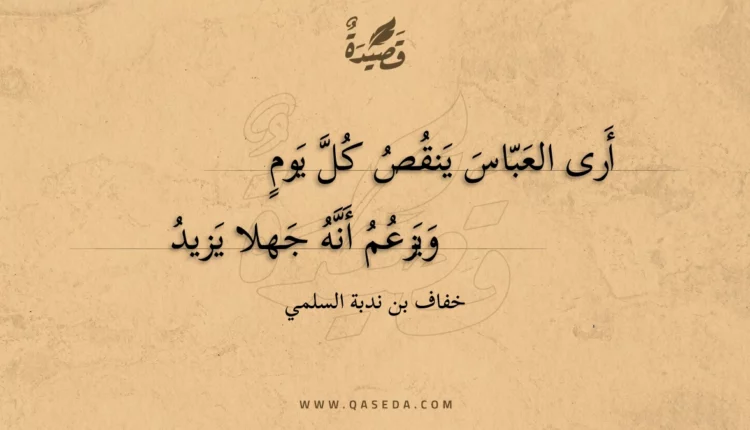 قَصِيْدَةٌ
أَرى العَبّاسَ يَنقُصُ كُلَّ يَومٍ
وَيَزعُمُ أَنَّهُ جَهلا يَزيدُ
خفاف بن ندبة السلمي
WWW.QASEDA.COM